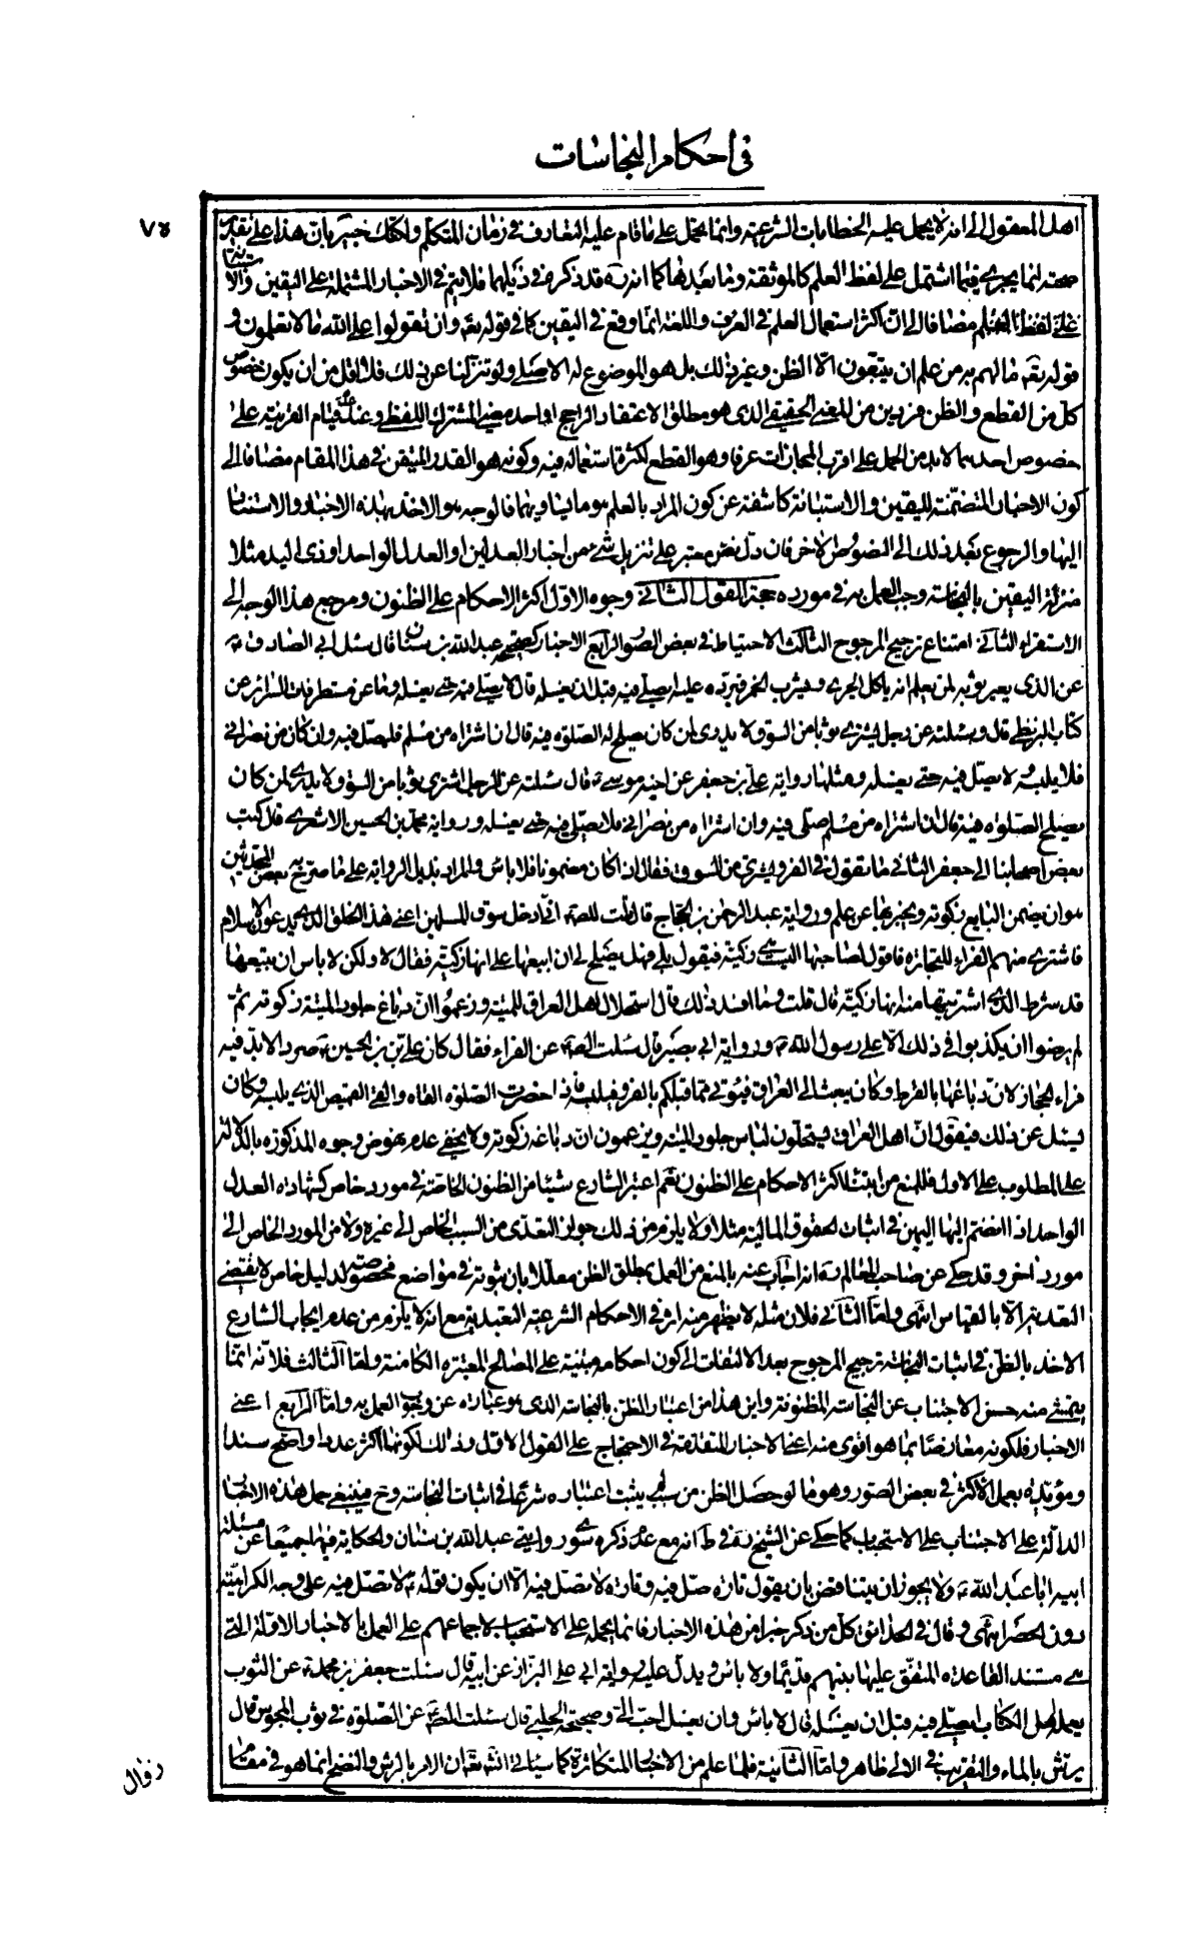 في احكام النجاسات
٧٥
اهل المعقول الى انه لا يحمل عليه الخطابات الشرعية وانما يحمل على ما قام عليه المتعارف في زمان المتكلم ولكنك خبير بان هذا على تقدير
صحته انما يجري فيما اشتمل على لفظ العلم كالموثقة وما بعدها كما انه ره قد ذكره في ذيلهما فلا يتم في الاخبار المشتملة على اليقين والاستبانة
على لفظ العلم مضافا الى ان اكثر استعمال العلم في العرف واللغة انما وقع في اليقين كما في قوله تعالى وان تقولوا على الله ما لا تعلمون و
قوله تعالى ما لهم به من علم ان يتبعون الا الظن وغير ذلك بل هو الموضوع له الاصلي ولو تنزلنا عن ذلك فلا اقل من ان يكون خصوص
كل من القطع والظن فردين من المعنى الحقيقي الذي هو مطلق الاعتقاد الراجح او احد معنيي المشترك اللفظي وعند قيام القرينة على
خصوص احدهما لا بد من الحمل على اقرب المجازات عرفا وهو القطع لكثرة استعماله فيه وكونه هو القدر المتيقن في هذا المقام مضافا الى
كون الاخبار المتضمنة لليقين والاستبانة كاشفة عن كون المراد بالعلم هو ما يساويهما فالوجه هو الاخذ بهذه الاخبار والاستناد
اليها والرجوع بعد ذلك الى النصوص الاخر فان دل نص معتبر على تنزيل شيء من اخبار العدلين او العدل الواحد او ذي اليد مثلا
منزلة اليقين بالنجاسة وجب العمل به في مورده حجة القول الثاني وجوه الاول اكثر الاحكام على الظنون ومرجع هذا الوجه الى
الاستقراء الثاني امتناع ترجيح المرجوح الثالث الاحتياط في بعض الصور الرابع الاخبار كصحيحة عبد الله بن سنان قال سئل ابي الصادق ع
عن الذي يعير ثوبه لمن يعلم انه ياكل الجري ويشرب الخمر فيرده عليه ايصلي فيه قبل ان يغسله قال لا يصلي فيه حتى يغسله وما عن مستطرفات السرائر عن
كتاب البزنطي قال وسئلته عن رجل يشتري ثوبا من السوق ولا يدري لمن كان يصلح له الصلوة فيه قال ان اشتراه من مسلم فليصل فيه وان كان من نصراني
فلا يلبسه لا يصلي فيه حتى يغسله ومثلها رواية علي بن جعفر عن اخيه موسى ع قال سئلته عن الرجل اشترى ثوبا من السوق ولا يدري لمن كان
يصلح الصلوة فيه قال ان اشتراه من مسلم صلى فيه وان اشتراه من نصراني فلا يصلي فيه حتى يغسله ورواية محمد بن الحسين الاشعري قال كتب
بعض اصحابنا الى جعفر الثاني ما تقول في الفرو يشترى من السوق فقال اذا كان مضمونا فلا باس والمراد بذيل الرواية على ما صرح به بعض المحدثين
هو ان يضمن البايع زكوته ويخبر بها عن علم ورواية عبد الرحمن بن الحجاج قال قلت للصادق ع اني ادخل سوق المسلمين اعني هذا الخلق الذي يدعون الاسلام
فاشتري منهم الفراء للتجارة فاقول لصاحبها اليس هي زكية فيقول بلى فهل يصلح لي ان ابيعها على انها زكية فقال لا ولكن لا باس ان يتبعها
قد شرط الذي اشتريتها منه انها زكية قال قلت وما افسد ذلك قال استحلال اهل العراق للميتة وزعموا ان دباغ جلود الميتة زكوته ثم
لم يرضوا ان يكذبوا في ذلك الا على رسول الله ص ورواية ابي بصير قال سئلت الصادق عن الفراء فقال كان علي بن الحسين ع صردا لا تدفيه
فراء الحجاز لان دباغها بالقرظ وكان يبعث الى العراق فيؤتى مما قبلكم بالفرو فيلبسه فاذا حضرت الصلوة القاه والقى القميص الذي يلبسه وكان
يسئل عن ذلك فيقول ان اهل العراق يستحلون لباس جلود الميتة ويزعمون ان دباغه زكوته ولا يخفى عدم نهوض وجوه المذكورة بالدلالة
على المطلوب على الاول فللمنع من ابتناء اكثر الاحكام على الظنون نعم اعتبر الشارع شيئا من الظنون الخاصة في مورد خاص كشهادة العدل
الواحد اذا انضم اليها اليمين في اثبات الحقوق المالية مثلا ولا يلزم من ذلك جواز التعدي من السبب الخاص الى غيره ولا من المورد الخاص الى
مورد اخر وقد حكي عن صاحب المعالم ره انه اجاب عنه بالمنع من العمل بمطلق الظن معللا بان ثبوته في مواضع مخصوصة لدليل خاص لا يقتضي
التعدية الا بالقياس انتهى واما الثاني فلان مثله لا يظهر منه اثر في الاحكام الشرعية التعبدية مع انه لا يلزم من عدم ايجاب الشارع
الاخذ بالظن في اثبات النجاسة ترجيح المرجوح بعد الالتفات الى كون احكامه مبنية على المصالح المعتبرة الكامنة واما الثالث فلانه انما
يتمشى منه حسن الاجتناب عن النجاسة المظنونة واين هذا من اعتبار الظن بالنجاسة الذي هو عبارة عن وجوب العمل به واما الرابع اعني
الاخبار فلكونه معارضا بما هو اقوى منه اعني الاخبار المتقدمة في الاحتجاج على القول الاول وذلك لكونها اكثر عددا واصح سندا
ومؤيدة بعمل الاكثر في بعض الصور وهو ما لو حصل الظن من سبب يثبت اعتباره شرعا في اثبات النجاسة وح فينبغي حمل هذه الاخبار
الدالة على الاجتناب على الاستحباب كما حكي عن الشيخ ره في ط انه مع عدم ذكره سوى روايتي عبد الله بن سنان والحكاية فيهما جميعا عن مسئلة
ابيه ابا عبد الله ع ولا يجوز ان يتناقض بان يقول تارة صل فيه وتارة لا تصل فيه الا ان يكون قوله ع لا تصل فيه على وجه الكراهية
دون الحظر انتهى وقال في الحدائق كل من ذكر خبرا من هذه الاخبار فانما يحمله على الاستحباب لاجماعهم على العمل بالاخبار الاولة التي
هي مستند القاعدة المتفق عليها بينهم قديما ولا باس ويدل عليه رواية ابي علي البزاز عن ابيه قال سئلت جعفر بن محمد ع عن الثوب
يعمله اهل الكتاب ايصلى فيه قبل ان يغسله قال لا باس وان يغسل احب الي وصحيحة الحلبي قال سئلت الصادق عن الصلوة في ثوب المجوسي قال
يرش بالماء والتقريب في الاولى ظاهر واما الثانية فلما علم من الاخبار المتكاثرة كما سياتي انشاء الله تعالى ان الامر بالرش والنضح انما هو في مقام
زوال